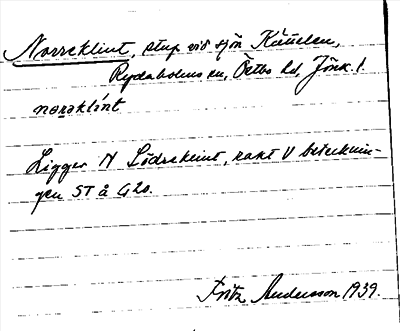 Norreklint, stup vid sjön Kättelen,
Rydaholms sn, Östbo hd, Jönk. l.
noraklint
Ligger N Södreklint, rakt V betecknin-
gen ST å G20.
Fritz Andersson 1939.